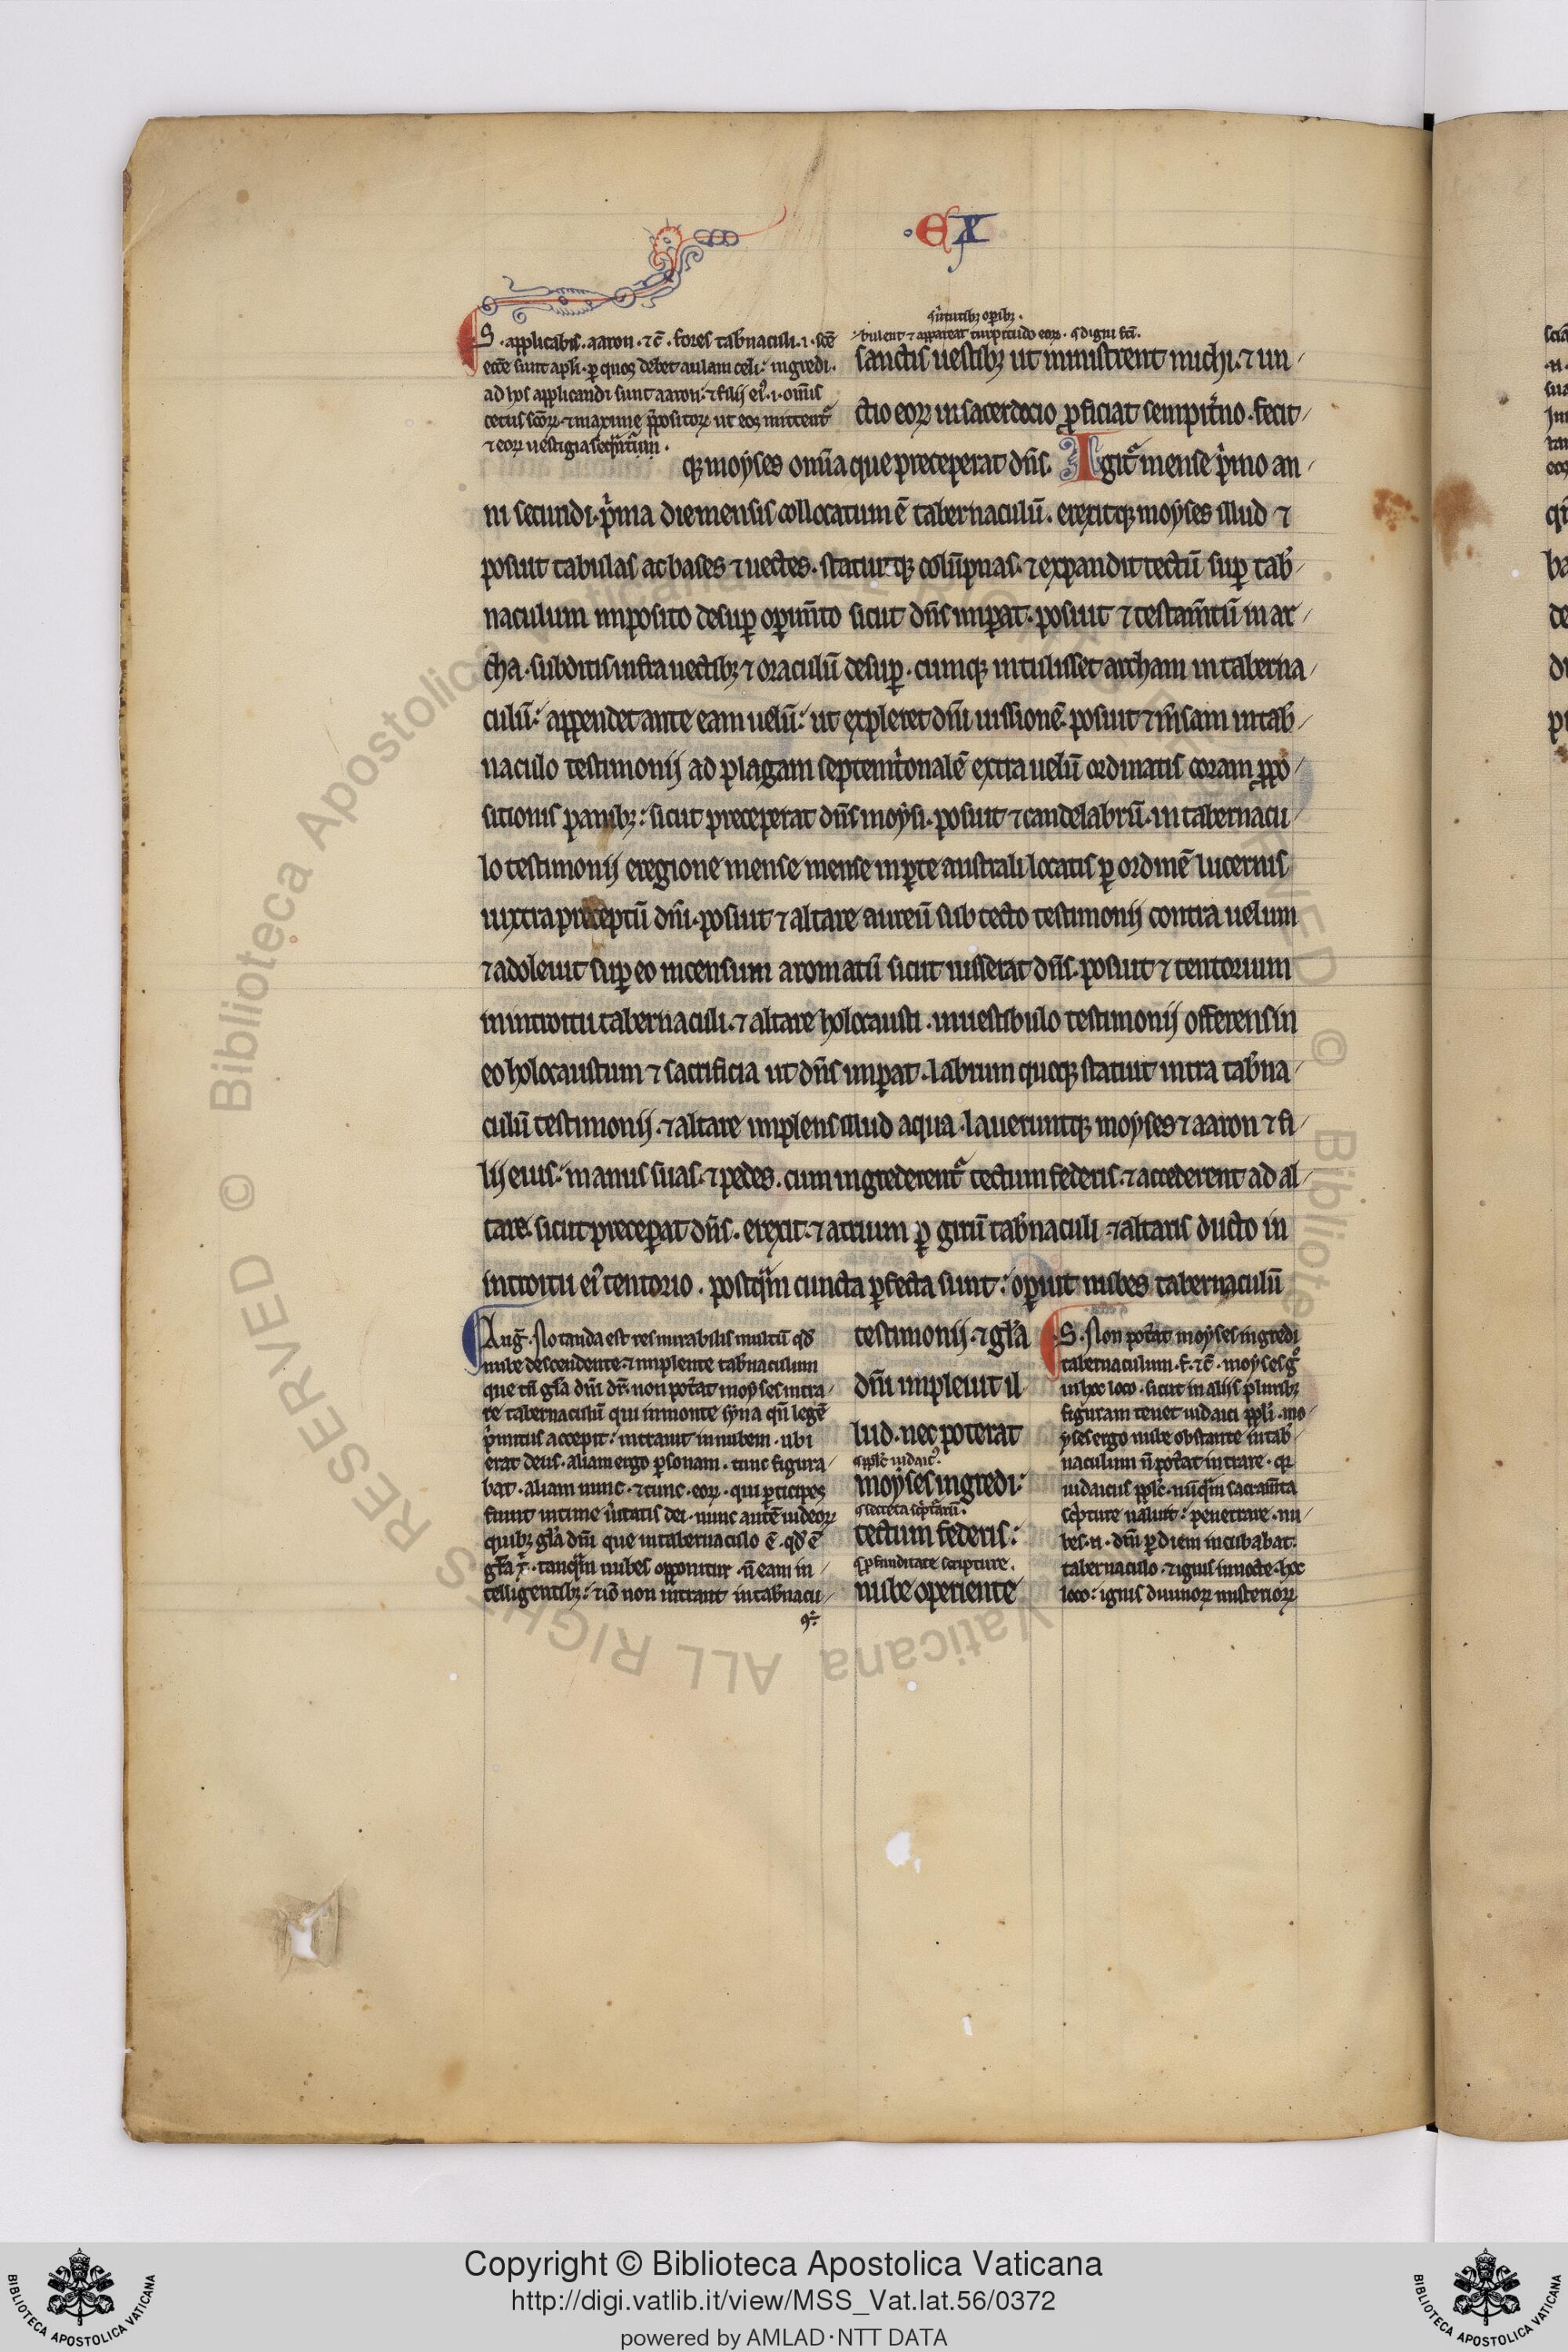 ·EX
S·applicabis·aaron·⁊c̄·fores tab̄naculi·i·sc̄e
ecc̄e sunt apl̄i·ꝑ quos debet aulam celi: ingredi·
ad hos applicandi sunt aaron: ⁊ filij eiꝰ·i·om̄is
cetus sc̄oꝝ·⁊ maxime p̄positoꝝ ut eos mittent᷑
⁊ eoꝝ uestigia
uirtutibꝫ oꝑibꝫ·
⁊ appareat turpitudo eoꝝ· digni
sanctis uestibꝫ ut ministrent michi·⁊ un
ctio eoꝝ in sacerdocio ꝓficiat sempit̄no·fecit
qꝫ moyses om̄ia que preceperat dn̄s· Igit᷑ mense p̄mo an
ni secundi·p̄ma die mensis collocatum ē tabernaculū·erexitqꝫ moyses illud ⁊
posuit tabulas ac bases ⁊ uectes·statuitqꝫ colūpnas·⁊ expandit tectū suꝑ tab̄
naculum imposito desuꝑ oꝑim̄to sicut dn̄s imꝑat·posuit ⁊ testam̄tū in ar
cha·subditis infra uectibꝫ ⁊ oraculū desuꝑ·cumqꝫ intulisset archam in taberna
culū: appendet ante eam uelū: ut expleret dn̄i iussionē·posuit ⁊ m̄sam in tab̄
naculo testimonij ad plagam septemt̄onalē extra uelū ordinatis coram ꝓpo
sitionis panibꝫ: sicut preceperat dn̄s moysi·posuit ⁊ candelabrū·in tabernacu
lo testimonij eregione mense mense in ꝑte australi locatis ꝑ ordinē lucernis
iuxta preceptū dn̄i·posuit ⁊ altare aureū sub tecto testimonij contra uelum
⁊ adoleuit suꝑ eo incensum aromatū sicut iusserat dn̄s·posuit ⁊ tentorium
in introitu tabernaculi·⁊ altare holocausti·in uestibulo testimonij offerens in
eo holocaustum ⁊ sacrificia ut dn̄s imꝑat·labrum quoqꝫ statuit intra tab̄na
culū testimonij·⁊ altare implens illud aqua·laueruntqꝫ moyses ⁊ aaron ⁊ fi
lij eius: manus suas·⁊ pedes·cum ingrederent᷑ tectum federis·⁊ accederent ad al
tare·sicut preceꝑat dn̄s·erexit·⁊ atrium ꝑ girū tab̄naculi·⁊ altaris ducto in
introitu eiꝰ tentorio·postq̄m cuncta ꝑfecta sunt: oꝑuit nubes tabernaculū
Auḡ·Notanda est res mirabilis multū qd̄
nube descendente·⁊ implente tab̄naculum
que tn̄ gl̄a dn̄i dr̄·non pot̄at moyses intra
re tabernaculū qui in monte syna qn̄ legē
p̄mitus accepit: intrauit in nubem·ubi
erat deus·aliam ergo ꝑsonam·tunc figura
bat·aliam nunc·⁊ tunc·eoꝝ·qui ꝑticipes
fiunt intime ūitatis dei·nunc autē iudeoꝝ
quibꝫ gl̄a dn̄i que in tabernaculo ē·qd̄ ē
gr̄a x̄·tanq̄m nubes opponitur·n̄ eam in
telligentibꝫ: ⁊ iō non intrant in tab̄nacu
testimonij·⁊ gl̄a
dn̄i impleuit il
lud·nec poterat
ppl̄s iudaicꝰ·
moyses ingredi:
secreta sc̄pt̄arū·
tectum federis:
ꝓfunditate scripture·
nube operiente
S·Non pot̄at moyses ingredi
tabernaculum·f·⁊c̄·moyses gͦ
in hoc loco·sicut in alijs pluribꝫ
figuram tenet iudaici ppl̄i·mo
yses ergo nube obstante in tab̄
naculum n̄ pot̄at intrare·qꝫ
iudaicus ppl̄s·nūq̄m sacram̄ta
sc̄pture ualuit: penetrare·nu
bes·n·dn̄i ꝑ diem incubabat
tabernaculo·⁊ ignis in nocte·hoc
loco: ignis diuinoꝝ misterioꝝ
Copyright © Biblioteca Apostolica Vaticana
http://digi.vatlib.it/view/MSS_Vat.lat.56/0372
powered by AMLAD·NTT DATA
BIBLIOTECA APOSTOLICA VATICANA
BIBLIOTECA APOSTOLICA VATICANA
© Biblioteca Apostolica Vaticana ALL RIGHTS RESERVED